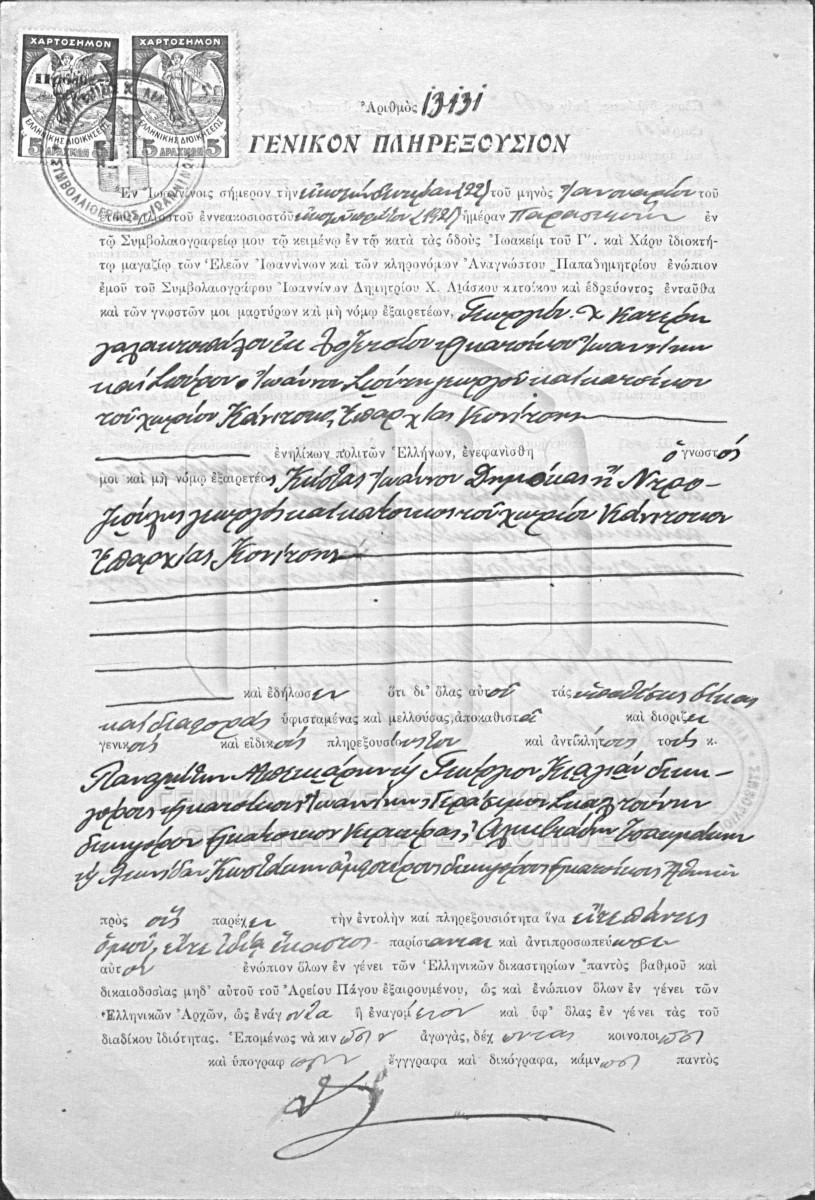 ΧΑΡΤΟΣΗΜΟΝ ΧΑΡΤΟΣΗΜΟΝ
ΕΛΛΗΝΙΚΗΣ ΔΙΟΙΚΗΣΕΩΣ ΕΛΛΗΝΙΚΗΣ ΔΙΟΙΚΗΣΕΩΣ
5 ΔΡΑΧΜΑΙ 5 5 ΔΡΑΧΜΑΙ 5
Ἀριθμὸς 13131
ΓΕΝΙΚΟΝ ΠΛΗΡΕΞΟΥΣΙΟΝ
Ἐν Ἰωαννίνοις σήμερον τὴν εἰκοστὴν δευτέραν (22) τοῦ μηνὸς Ἰανουαρίου τοῦ
ἔτους χιλιοστοῦ ἐννεακοσιοστοῦ εἰκοστοῦ πρώτου (1921) ἡμέραν Παρασκευὴν ἐν
τῷ Συμβολαιογραφείῳ μου τῷ κειμένῳ ἐν τῷ κατὰ τὰς ὁδοὺς Ἰωακεὶμ τοῦ Γ΄. καὶ Χάρυ ἰδιοκτή-
τῳ μαγαζίῳ τῶν Ἐλεῶν Ἰωαννίνων καὶ τῶν κληρονόμων Ἀναγνώστου Παπαδημητρίου ἐνώπιον
ἐμοῦ τοῦ Συμβολαιογράφου Ἰωαννίνων Δημητρίου Χ. Λιάσκου κατοίκου καὶ ἑδρεύοντος ἐνταῦθα
καὶ τῶν γνωστῶν μοι μαρτύρων καὶ μὴ νόμῳ ἐξαιρετέων, Γεωργίου Χ
κατοίκου Ἰωαννίνων
καὶ Σπύρου Ἰωάννου Σιούτη γεωργοῦ καὶ κατοίκου
τοῦ χωρίου Κάντσικο, Ἐπαρχίας Κονίτσης
ἐνηλίκων πολιτῶν Ἑλλήνων, ἐνεφανίσθη ὁ γνωστός
μοι καὶ μὴ νόμῳ ἐξαιρετέος Κώστας Ἰωάννου Δημόκας ἢ
γεωργὸς καὶ κάτοικος τοῦ χωρίου Κάντσικου
Ἐπαρχίας Κονίτσης
καὶ ἐδήλωσεν ὅτι δι᾽ ὅλας αὐτοῦ τὰς ὑποθέσεις δίκας
καὶ διαφορὰς ὑφισταμένας καὶ μελλούσας, ἀποκαθιστᾷ καὶ διορίζει
γενικοὺς καὶ εἰδικοὺς πληρεξουσίους του καὶ ἀντικλήτους τοὺς κ.
Παναγιώτην Γεώργιον δικη-
γόρους κατοίκους Ἰωαννίνων, Γεράσιμον
δικηγόρον κάτοικον Κερκύρας, Ἀλκιβιάδην
Λεωνίδαν ἀμφοτέρους δικηγόρους κατοίκους Ἀθηνῶν
ΓΕΝΙΚΑ ΑΡΧΕΙΑ ΤΟΥ ΚΡΑΤΟΥΣ
GENERAL STATE ARCHIVES
πρὸς οὓς παρέχει τὴν ἐντολὴν καὶ πληρεξουσιότητα ἵνα εἴτε πάντες
ὁμοῦ, εἴτε ἰδίᾳ ἕκαστος παρίστανται καὶ ἀντιπροσωπεύωσι
αὐτὸν ἐνώπιον ὅλων ἐν γένει τῶν Ἑλληνικῶν δικαστηρίων παντὸς βαθμοῦ καὶ
δικαιοδοσίας μηδ᾽ αὐτοῦ τοῦ Ἀρείου Πάγου ἐξαιρουμένου, ὡς καὶ ἐνώπιον ὅλων ἐν γένει τῶν
Ἑλληνικῶν Ἀρχῶν, ὡς ἐνάγοντα ἢ ἐναγόμενον καὶ ὑφ᾽ ὅλας ἐν γένει τὰς τοῦ
διαδίκου ἰδιότητας. Ἑπομένως νὰ κινῶσιν ἀγωγάς, δέχωνται κοινοποιῶσι
καὶ ὑπογράφωσιν ἔγγραφα καὶ δικόγραφα, κάμνωσι παντὸς